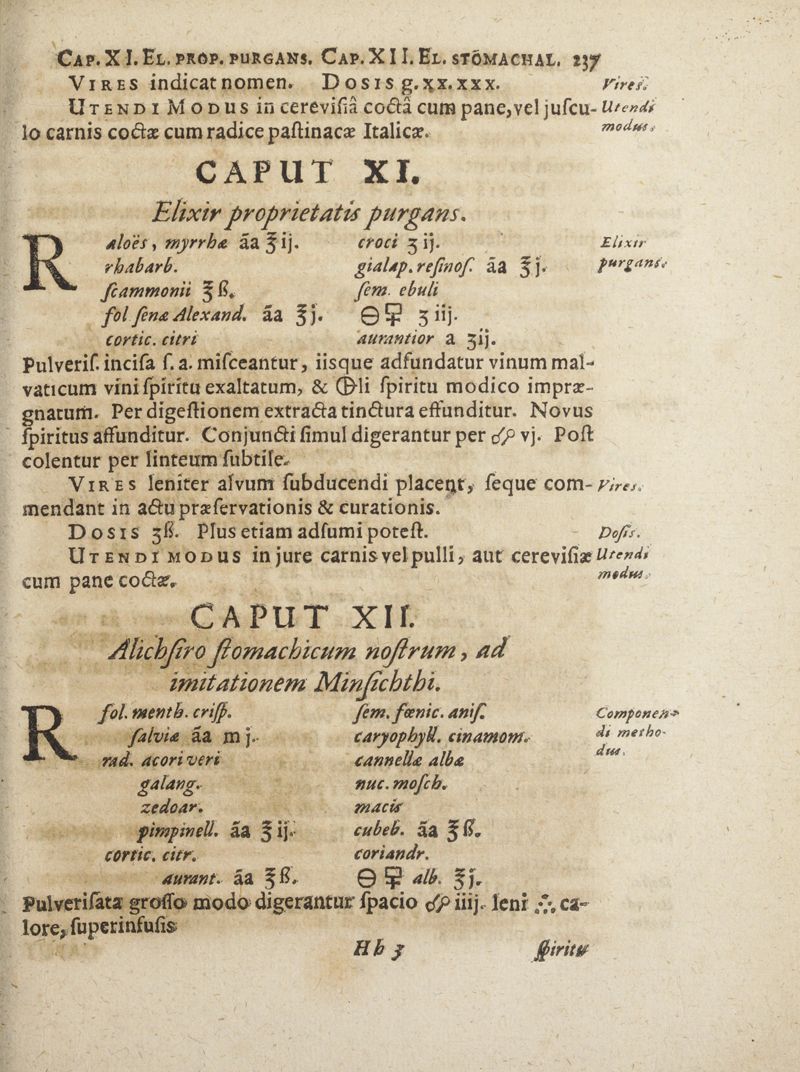 CAP. XI. EL. PROP. PURGANS. CAP. XII. EL. STŌMACHAL. 237
VIRES indicat nomen. DOSIS g. xx. xxx. Vires.
UTENDI MODUS in cerevisiâ coctâ cum pane, vel juscu- Utendi
lo carnis coctæ cum radice pastinacæ Italicæ. modus.
CAPUT XI.
Elixir proprietatis purgans.
R aloës, myrrhæ āa ℥ ij. croci ʒ ij. Elixir
rhabarb. gialap. resinos. āā ℥ j. purgans.
scammonii ℥ ß. sem. ebuli
fol senæ Alexand. āa ℥ j. 🜔🜿 ʒ iij.
cortic. citri aurantior a ʒij.
Pulveris. incisa s. a. misceantur, iisque adfundatur vinum mal-
vaticum vini spiritu exaltatum, & 🜖li spiritu modico impræ-
gnatum. Per digestionem extracta tinctura effunditur. Novus
spiritus affunditur. Conjuncti simul digerantur per vj. Post
colentur per linteum subtile.
VIRES leniter alvum subducendi placent, seque com- Vires.
mendant in actu præservationis & curationis.
DOSIS ʒß. Plus etiam adsumi potest. Dosis.
UTENDI MODUS in jure carnis vel pulli, aut cerevisiæ Utendi
cum pane coctæ. modus.
CAPUT XII.
Alichsiro stomachicum nostrum, ad
imitationem Minsichthi.
R fol. menth. crisp. sem. fœnic. anis. Componen-
salviæ āa m j. caryophyll. cinamom. di metho-
rad. acori veri cannellæ albæ dus.
galang. nuc. mosch.
zedoar. macis
pimpinell. āa ℥ ij. cubeb. āa ℥ ß.
cortic. citr. coriandr.
aurant. āa ℥ ß. 🜔🜿 alb. ℥ j.
Pulverisata grosso modo digerantur spacio iiij. leni ca-
lore, superinfusis
Hh 3 spiritu